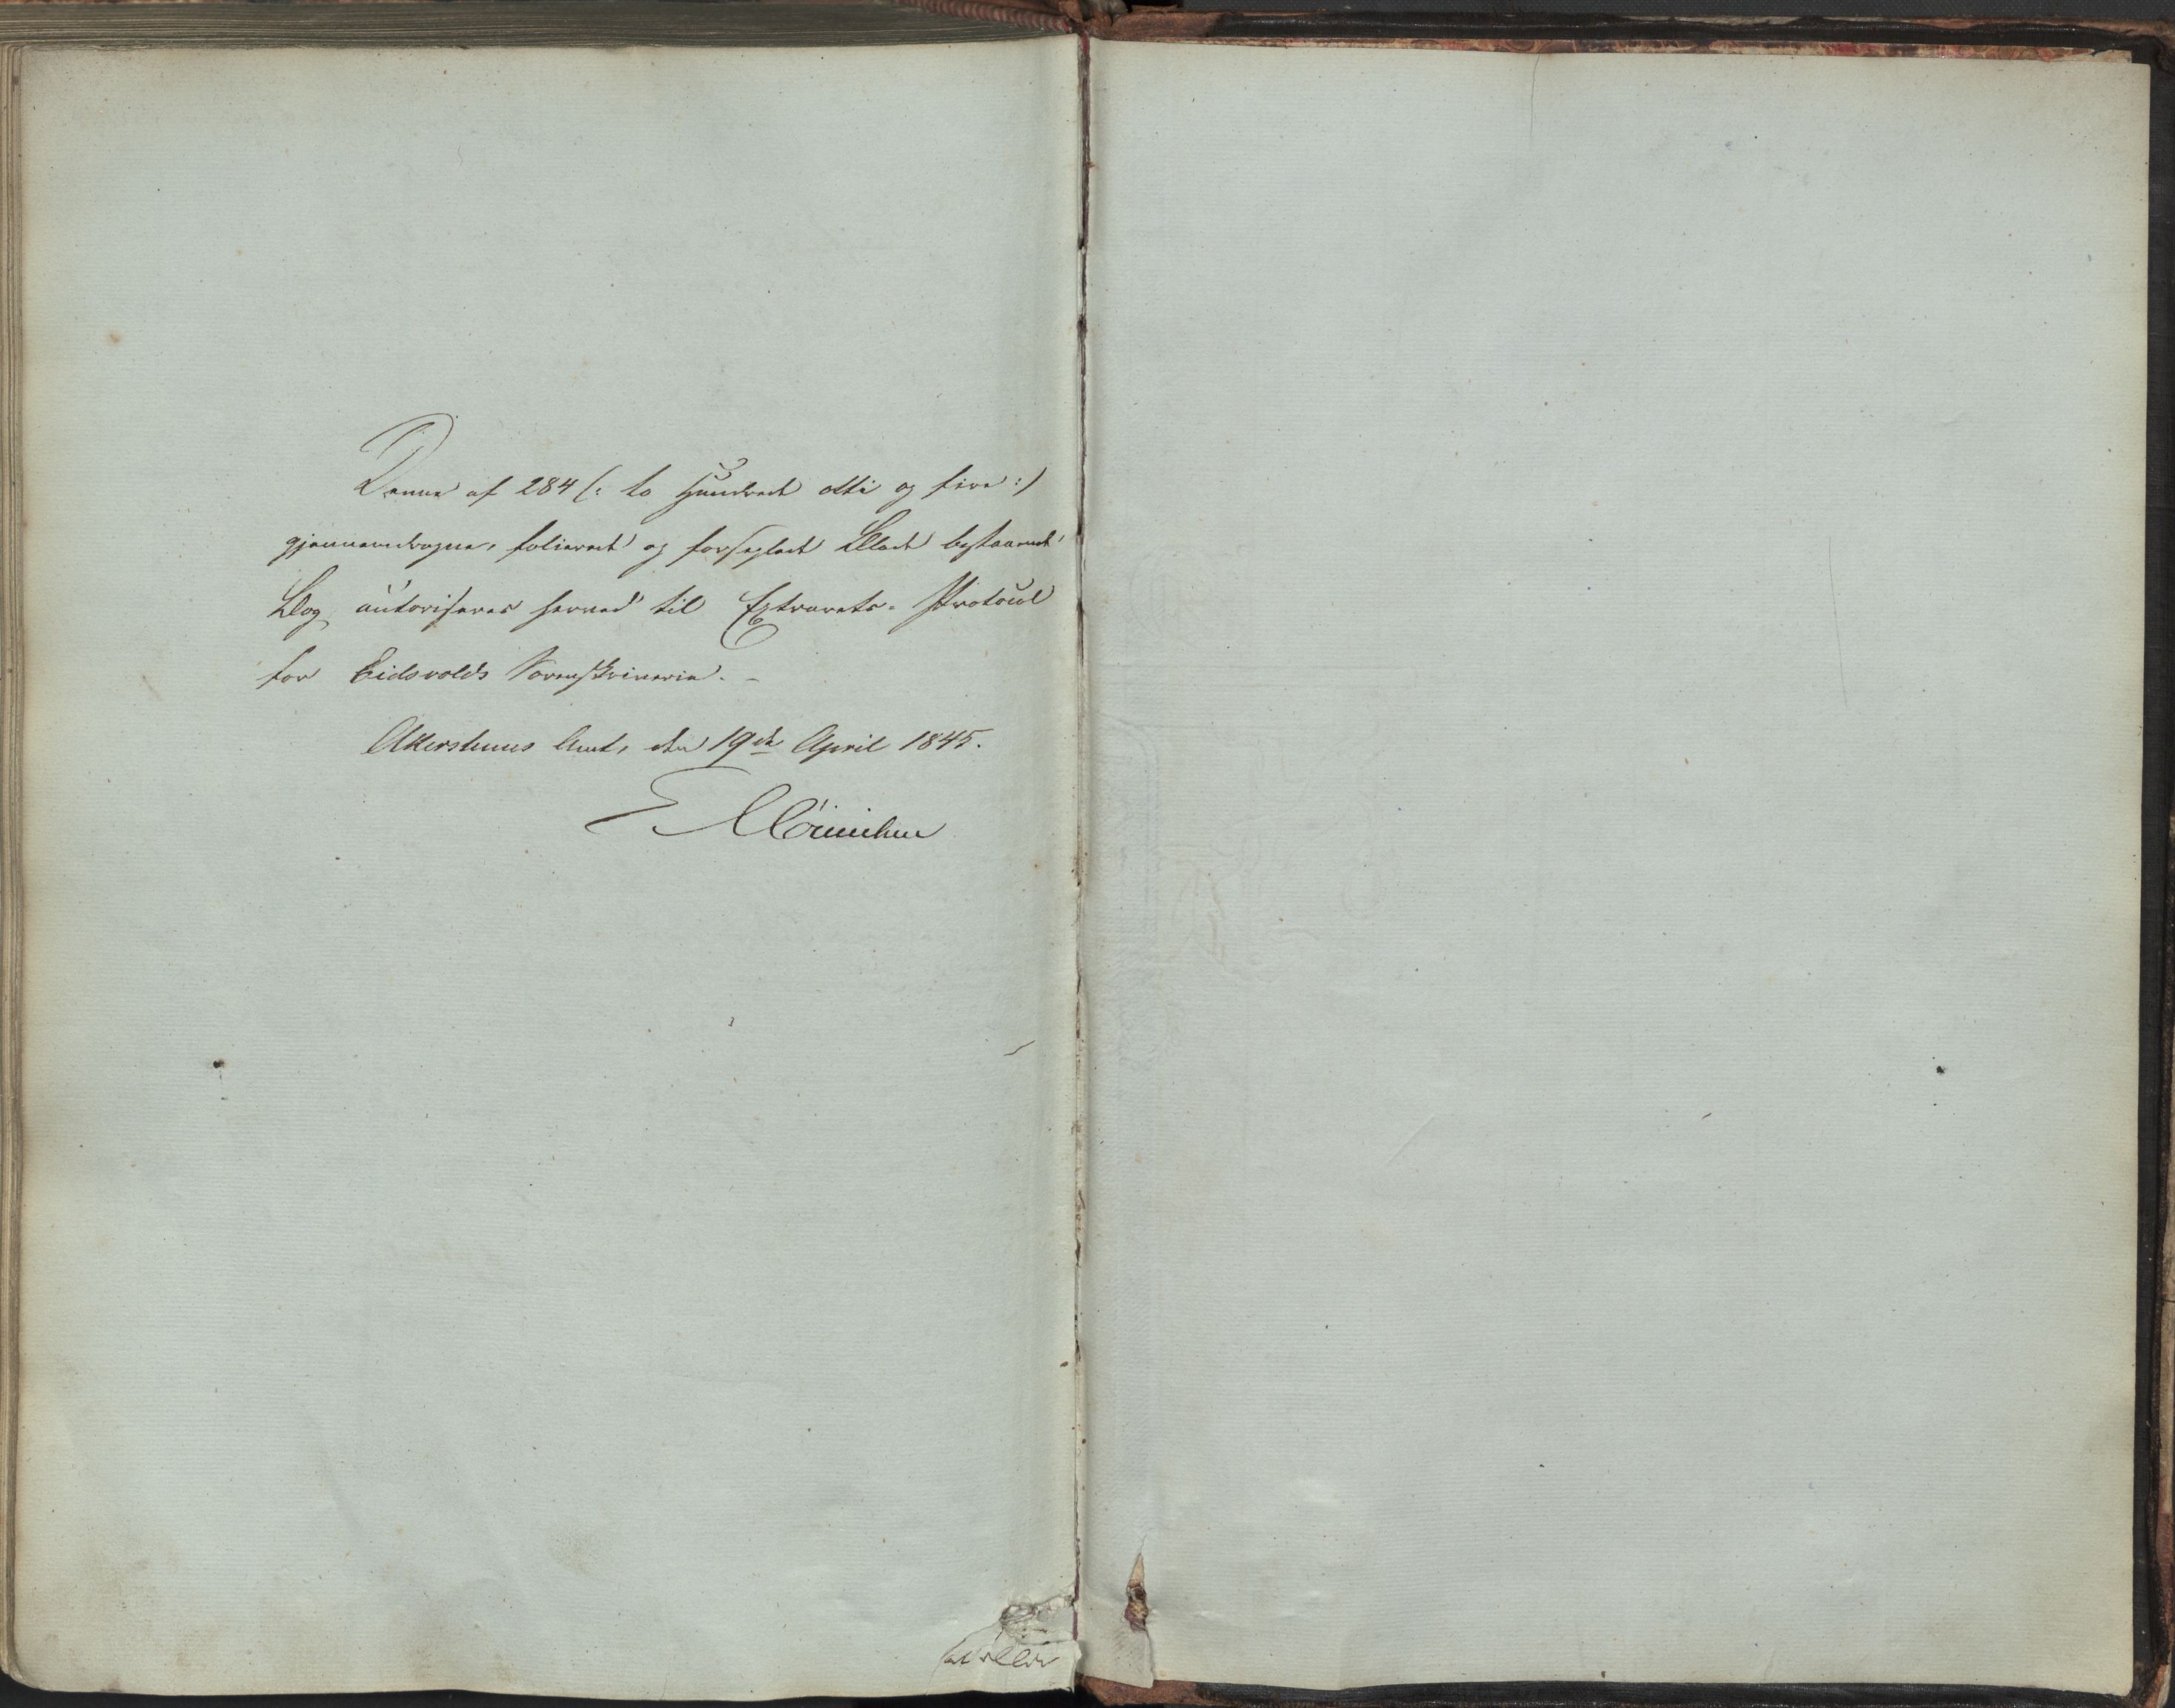 Denne af 284 (: to Hundrede otti og fire :)
gjennemdragne, folierede og forseglede Blade bestaaende
Bog autoriseres herved til Extrarets-Protocol
for Eidsvolds Sorenskriverie. -
Akershuus Amt, den 19de April 1845.